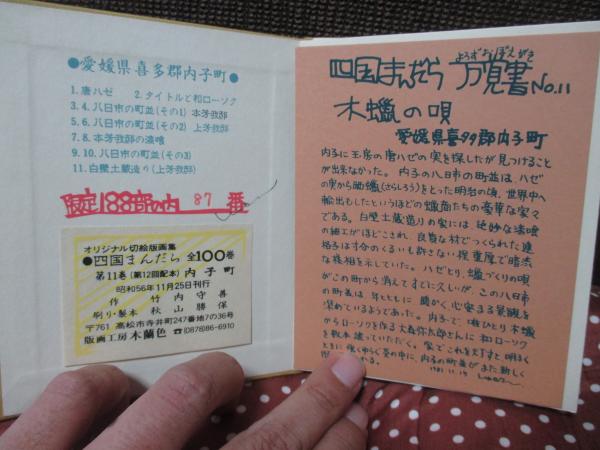 ●愛媛県喜多郡内子町●
1.唐ハゼ 2.タイトルと和ローソク
3.4.八日市の町並(その1) 本芳我邸
5.6.八日市の町並(その2) 上芳我邸
7.8.本芳我邸の漆喰
9.10.八日市の町並(その3)
11.白壁土蔵造り(上芳我邸)
限定188部の内 87 番
オリジナル切絵版画集
●四国まんだら 全100巻
第11巻(第12回配本) 内子町
昭和56年11月25日刊行
作 竹内守善
刷り・製本 秋山勝保
〒761 高松市寺井町247番地7の36号
版画工房木蘭色 ☎(0878)86-6910
四国まんだら 万覚書 No.11
よろずおぼえがき
木蠟の唄
愛媛県喜多郡内子町
内子に玉房の唐ハゼの実を探したが見つけること
が出来なかった。内子の八日市の町並は、ハゼ
の実から晒蠟(さらしろう)をとった明治の頃、世界中へ
輸出もしたというほどの蠟商たちの豪華な家々
である。白壁土蔵造りの家には、絶妙な漆喰
の細工がほどこされ、良質な材でつくられた連
格子は寸分のくるいも許さない程重厚で暗渋
な様相を示していた。ハゼとり、蠟づくりの唄
がこの町から消えてすでに久しいが、この八日市
の町並は、年とともに 心安まる景観を
深めているようであった。内子で、唯ひとり木蠟
からローソクを作る大森弥太郎さんに和ローソク
を数本譲っていただく。家でこれを灯すと明るく
ともに強くゆらぐ炎の中に、内子の町並がまた新しく
1981.11.19